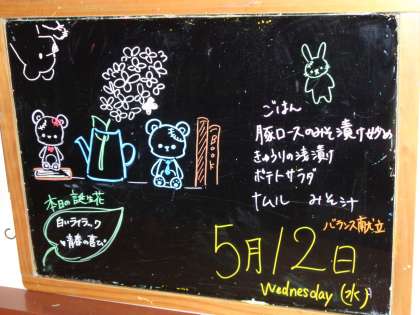 ごはん
豚ロースのみそ漬け炒め
きゅうりの浅漬け
ポテトサラダ
ナムル みそ汁
バランス献立
BOOK
本日の誕生花
白いライラック
青春の喜び
5月12日
Wednesday (水)